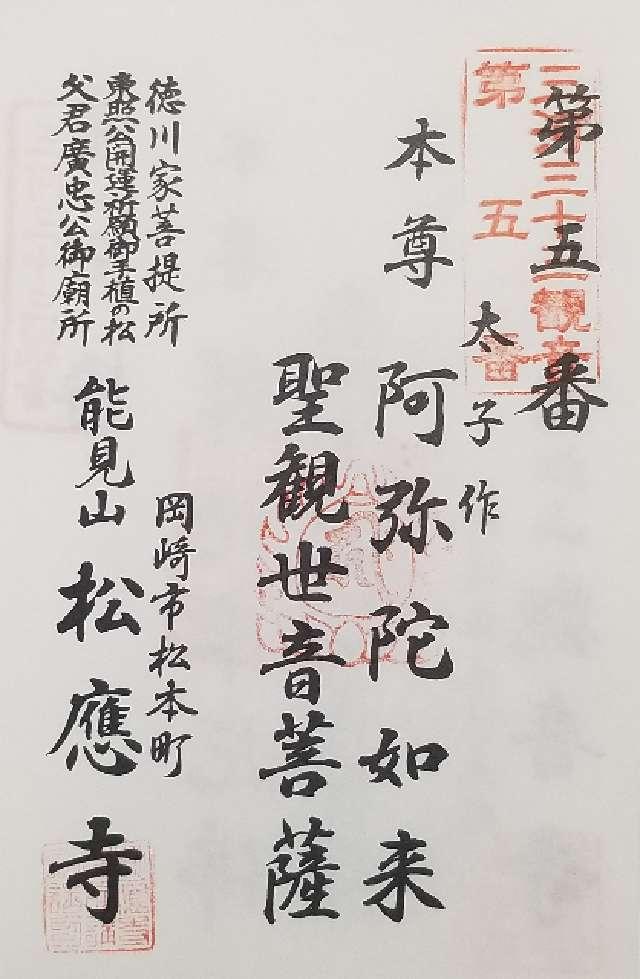 第五番
三河三十三観音
第五番
太子作
本尊 阿弥陀如来
聖観世音菩薩
徳川家菩提所
東照公開運祈願御手植の松
父君廣忠公御廟所
岡崎市松本町
能見山 松應寺